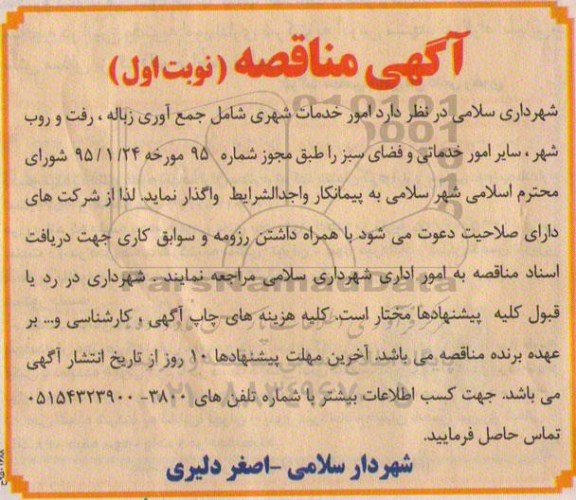 آگهی مناقصه (نوبت اول)
شهرداری سلامی در نظر دارد امور خدمات شهری شامل جمع آوری زباله ، رفت و روب
شهر ، سایر امور خدماتی و فضای سبز را طبق مجوز شماره ۹۵ مورخه ۹۵/۱/۲۴ شورای
محترم اسلامی شهر سلامی به پیمانکار واجدالشرایط واگذار نماید. لذا از شرکت های
دارای صلاحیت دعوت می شود با همراه داشتن رزومه و سوابق کاری جهت دریافت
اسناد مناقصه به امور اداری شهرداری سلامی مراجعه نمایند. شهرداری در رد یا
قبول کلیه پیشنهادها مختار است. کلیه هزینه های چاپ آگهی ، کارشناسی و... بر
عهده برنده مناقصه می باشد. آخرین مهلت پیشنهادها ۱۰ روز از تاریخ انتشار آگهی
می باشد. جهت کسب اطلاعات بیشتر با شماره تلفن های ۳۸۰۰- ۰۵۱۵۴۳۲۳۹۰۰
تماس حاصل فرمایید.
شهردار سلامی -اصغر دلیری
ParsNamadData